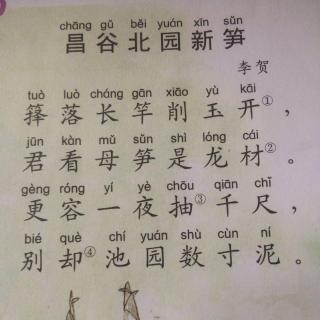 chāng gǔ běi yuán xīn sǔn
昌谷北园新笋
李贺
tuò luò cháng gān xiāo yù kāi
箨落长竿削玉开①，
jūn kàn mǔ sǔn shì lóng cái
君看母笋是龙材②。
gèng róng yí yè chōu qiān chǐ
更容一夜抽③千尺，
bié què chí yuán shù cùn ní
别却④池园数寸泥。